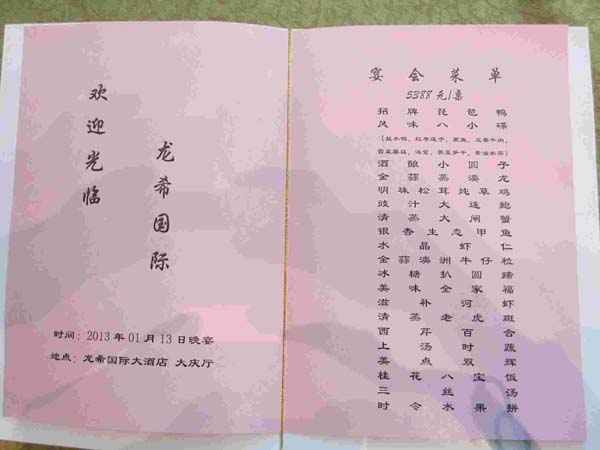 欢迎光临
龙希国际
时间：2013年01月13日晚宴
地点：龙希国际大酒店 大庆厅
宴会菜单
5388元/桌
招牌琵琶鸭
风味八小碟
酒酿小圆子
金蒜蒸澳龙
明珠松茸炖草鸡
豉汁大连鲍
清蒸大闸蟹
银杏生态甲鱼
水晶虾仁
金蒜澳洲牛仔粒
冰糖扒圆蹄
美味全家福
滋补河虾
清蒸老虎斑
西芹百合
上汤时蔬
美点双辉
桂花八宝饭
三丝汤
时令水果拼